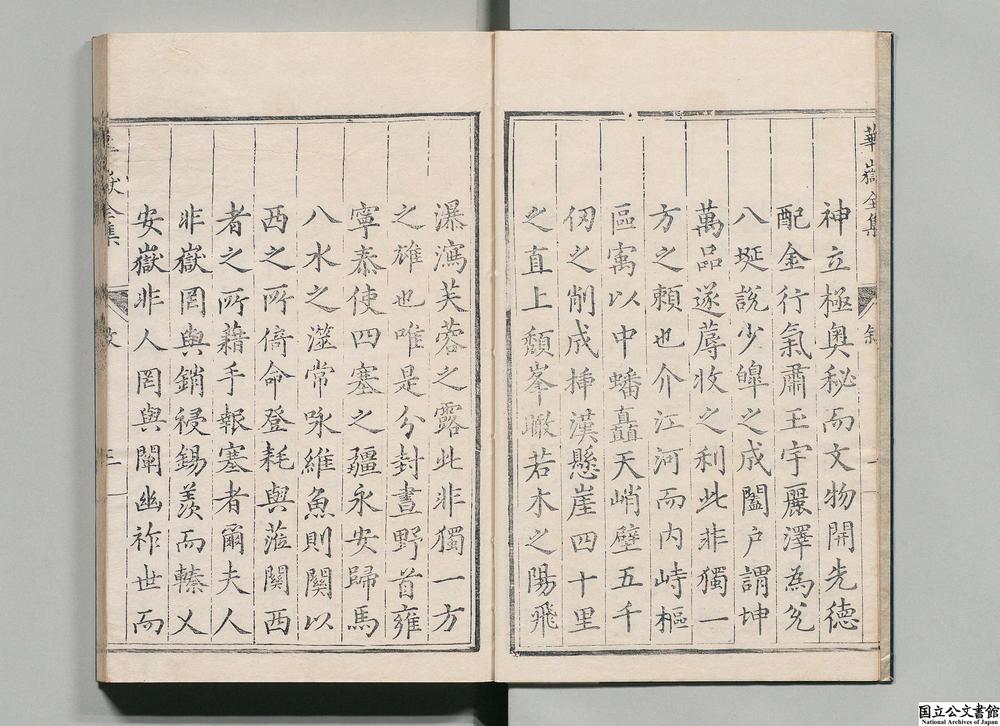 華嶽全集
敘
神立極奧秘而文物開先德
配金行氣肅玉宇麗澤為兌
八埏說少皞之成闔戶謂坤
萬品遂蓐收之利此非獨一
方之頼也介江河而内峙樞
區寓以中蟠矗天峭壁五千
仞之削成挿漢懸崖四十里
之直上頹峯瞰若木之陽飛
瀑瀉芙蓉之露此非獨一方
之雄也唯是分封晝野首雍
寧泰使四塞之疆永安歸馬
八水之澨常咏維魚則關以
西之所倚命登耗與蒞關西
者之所藉手報塞者爾夫人
非嶽罔與銷祲錫羨而轃乂
安嶽非人罔與闡幽祚世而
嶽全集
国立公文書館
National Archives of Japan